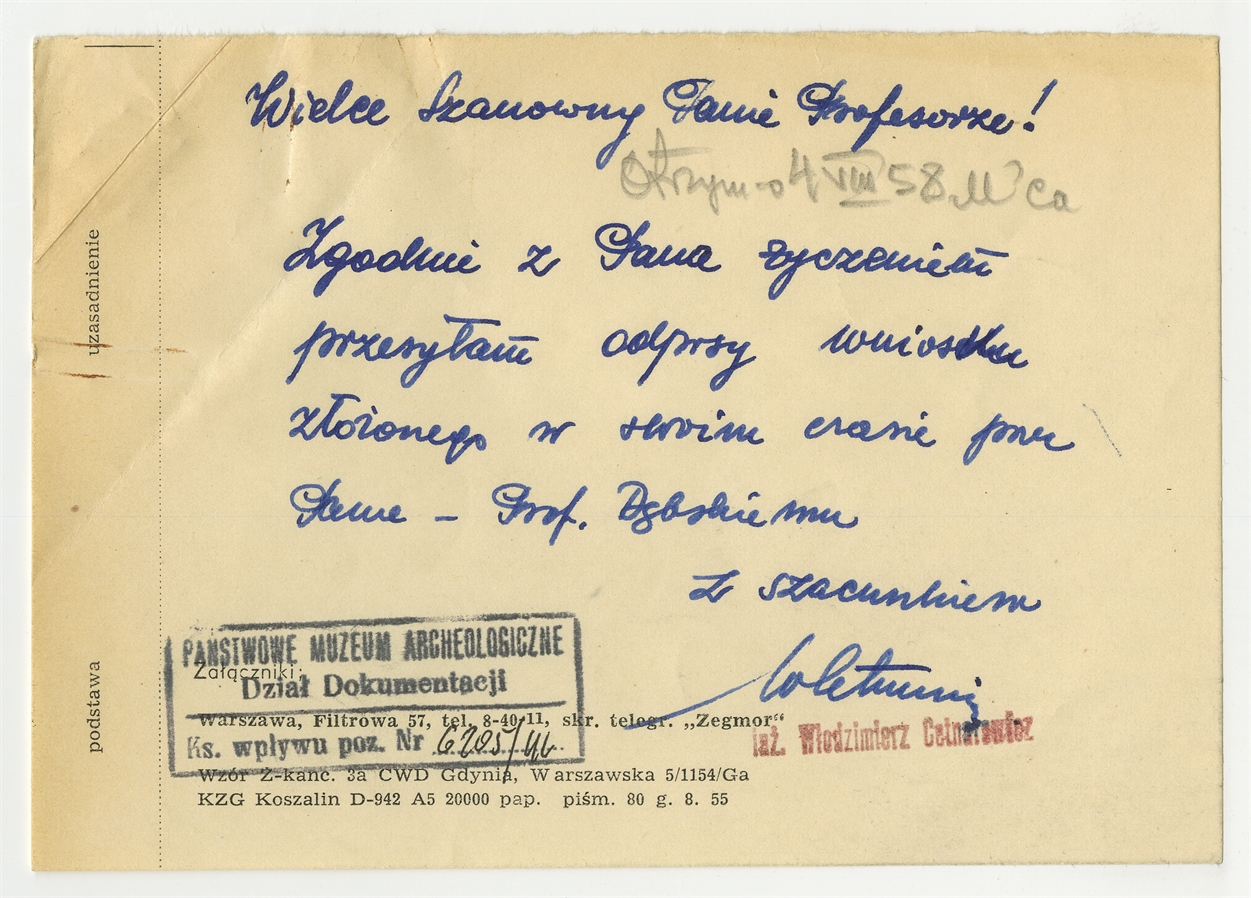 Wielce Szanowny Panie Profesorze!
Otrzym-o 4 VIII 58
Zgodnie z Pana życzeniem
przesyłam odpisy wniosku
złożonego w swoim czasie przez
Pana – Prof. Dębskiemu
z szacunkiem
inż. Włodzimierz Cetnarowicz
uzasadnienie
podstawa
PAŃSTWOWE MUZEUM ARCHEOLOGICZNE
Załączniki:
Dział Dokumentacji
Warszawa, Filtrowa 57, tel. 8-40-11, skr. telegr. „Zegmor“
Ks. wpływu poz. Nr 6205/
Wzór Ż-kanc. 3a CWD Gdynia, Warszawska 5/1154/Ga
KZG Koszalin D-942 A5 20000 pap. piśm. 80 g. 8. 55